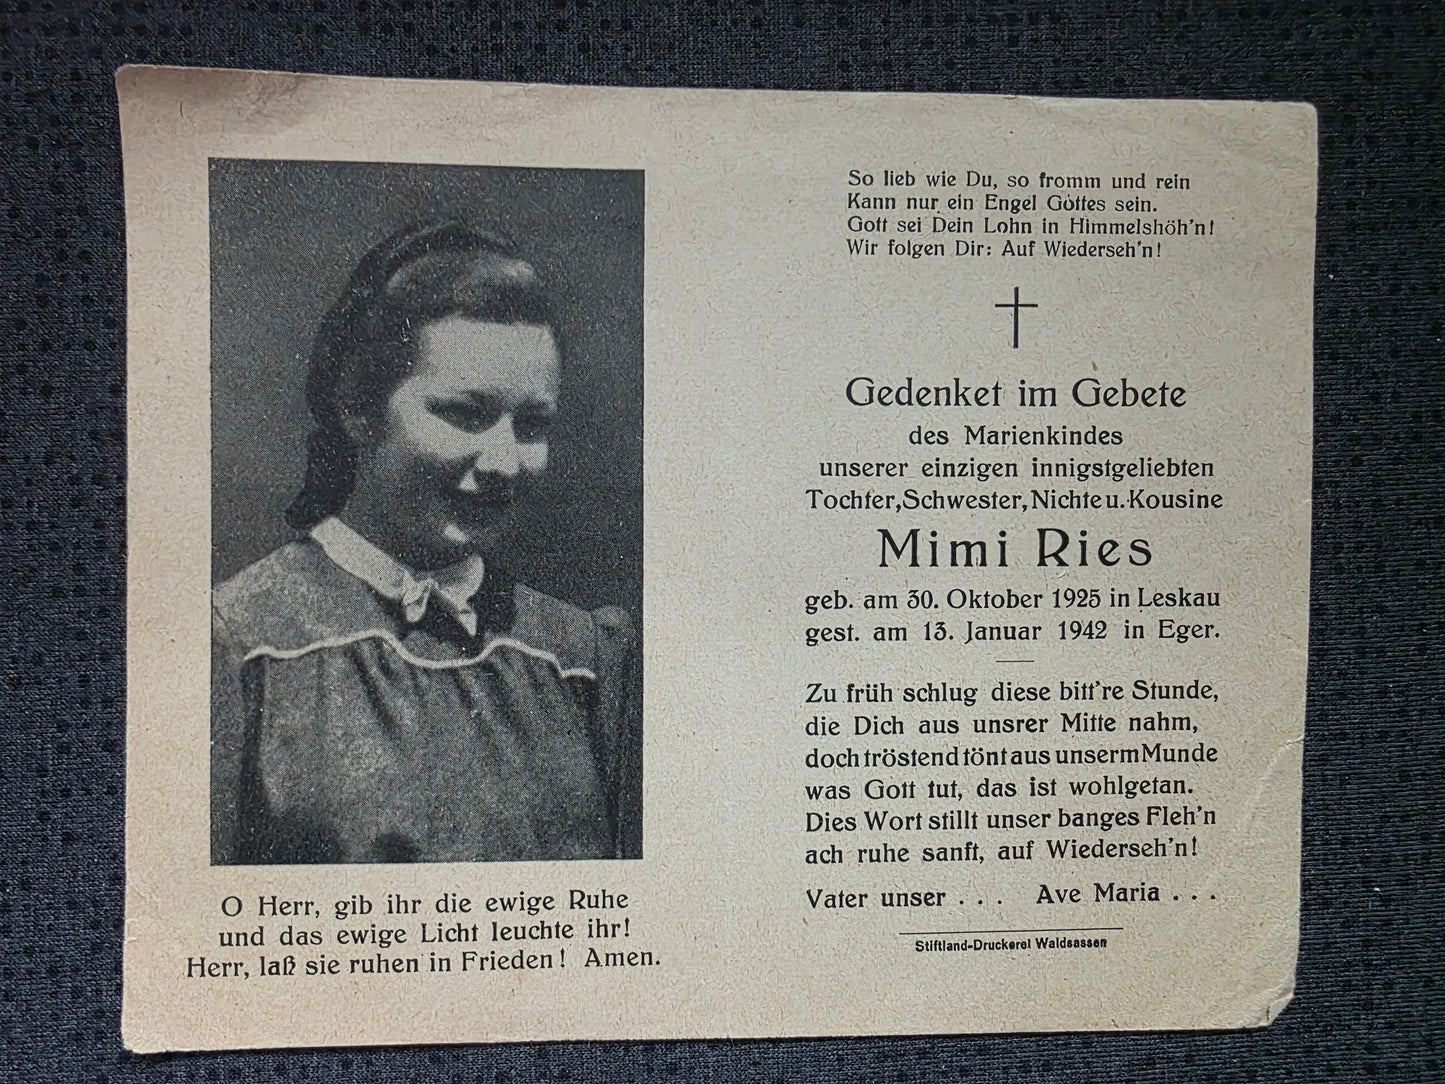 O Herr, gib ihr die ewige Ruhe
und das ewige Licht leuchte ihr!
Herr, laß sie ruhen in Frieden! Amen.
So lieb wie Du, so fromm und rein
Kann nur ein Engel Gottes sein.
Gott sei Dein Lohn in Himmelshöh'n!
Wir folgen Dir: Auf Wiederseh'n!
Gedenket im Gebete
des Marienkindes
unserer einzigen innigstgeliebten
Tochter, Schwester, Nichte u. Kousine
Mimi Ries
geb. am 30. Oktober 1925 in Leskau
gest. am 13. Januar 1942 in Eger.
Zu früh schlug diese bitt're Stunde,
die Dich aus unsrer Mitte nahm,
doch tröstend tönt aus unserm Munde
was Gott tut, das ist wohlgetan.
Dies Wort stillt unser banges Fleh'n
ach ruhe sanft, auf Wiederseh'n!
Vater unser . . . Ave Maria . . .
Stiftland-Druckerei Waldsassen